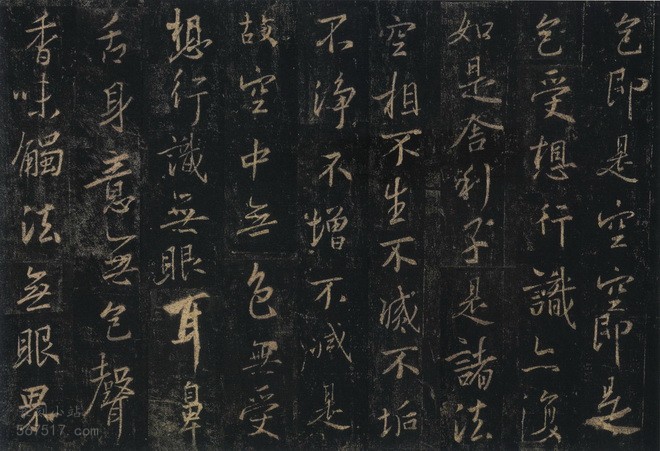 色即是空空即是
色受想行識亦復
如是舍利子是諸法
空相不生不滅不垢
不淨不增不減是
故空中無色無受
想行識無眼耳鼻
舌身意無色聲
香味觸法無眼界
587517.com